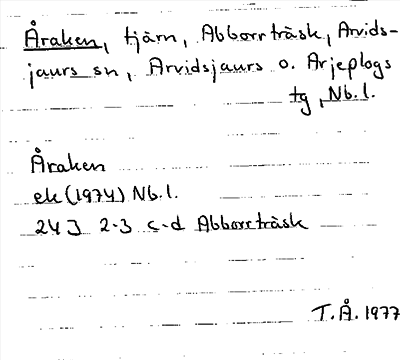 Åraken, tjärn, Abborrträsk, Arvids-
jaurs sn, Arvidsjaurs o. Arjeplogs
tg, Nb.l.
Åraken
ek (1974) Nb.l.
24J 2-3 c-d Abborrträsk
T.Å. 1977